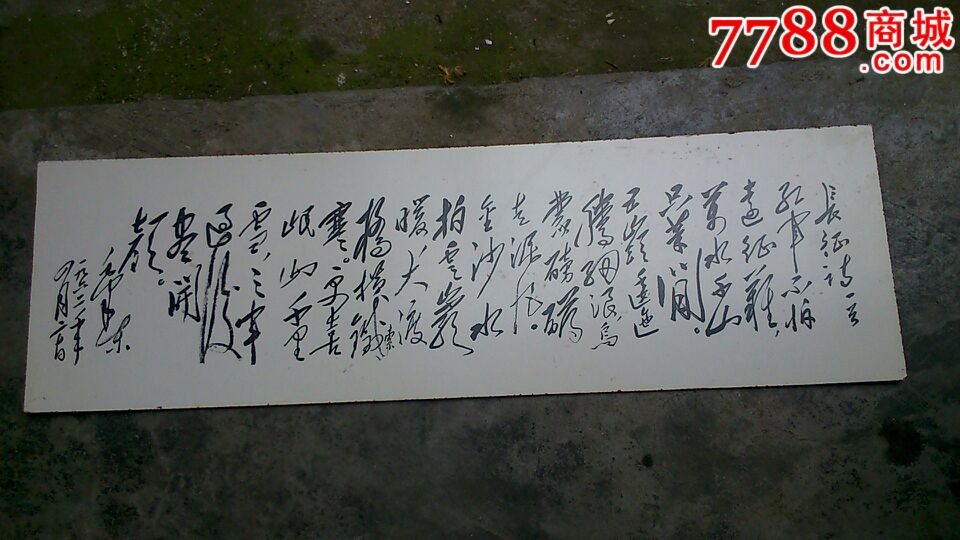 7788商城
.com
长征诗一首
红军不怕
遠征難，
萬水千山
只等閒。
五嶺逶迤
騰細浪，烏
蒙磅礴
走泥丸。
金沙水
拍雲崖
暖，大渡
橋橫鐵索
寒。更喜
岷山千里
雪，三軍
過後
盡開
顏。
毛泽东
一九六二年
四月二十日